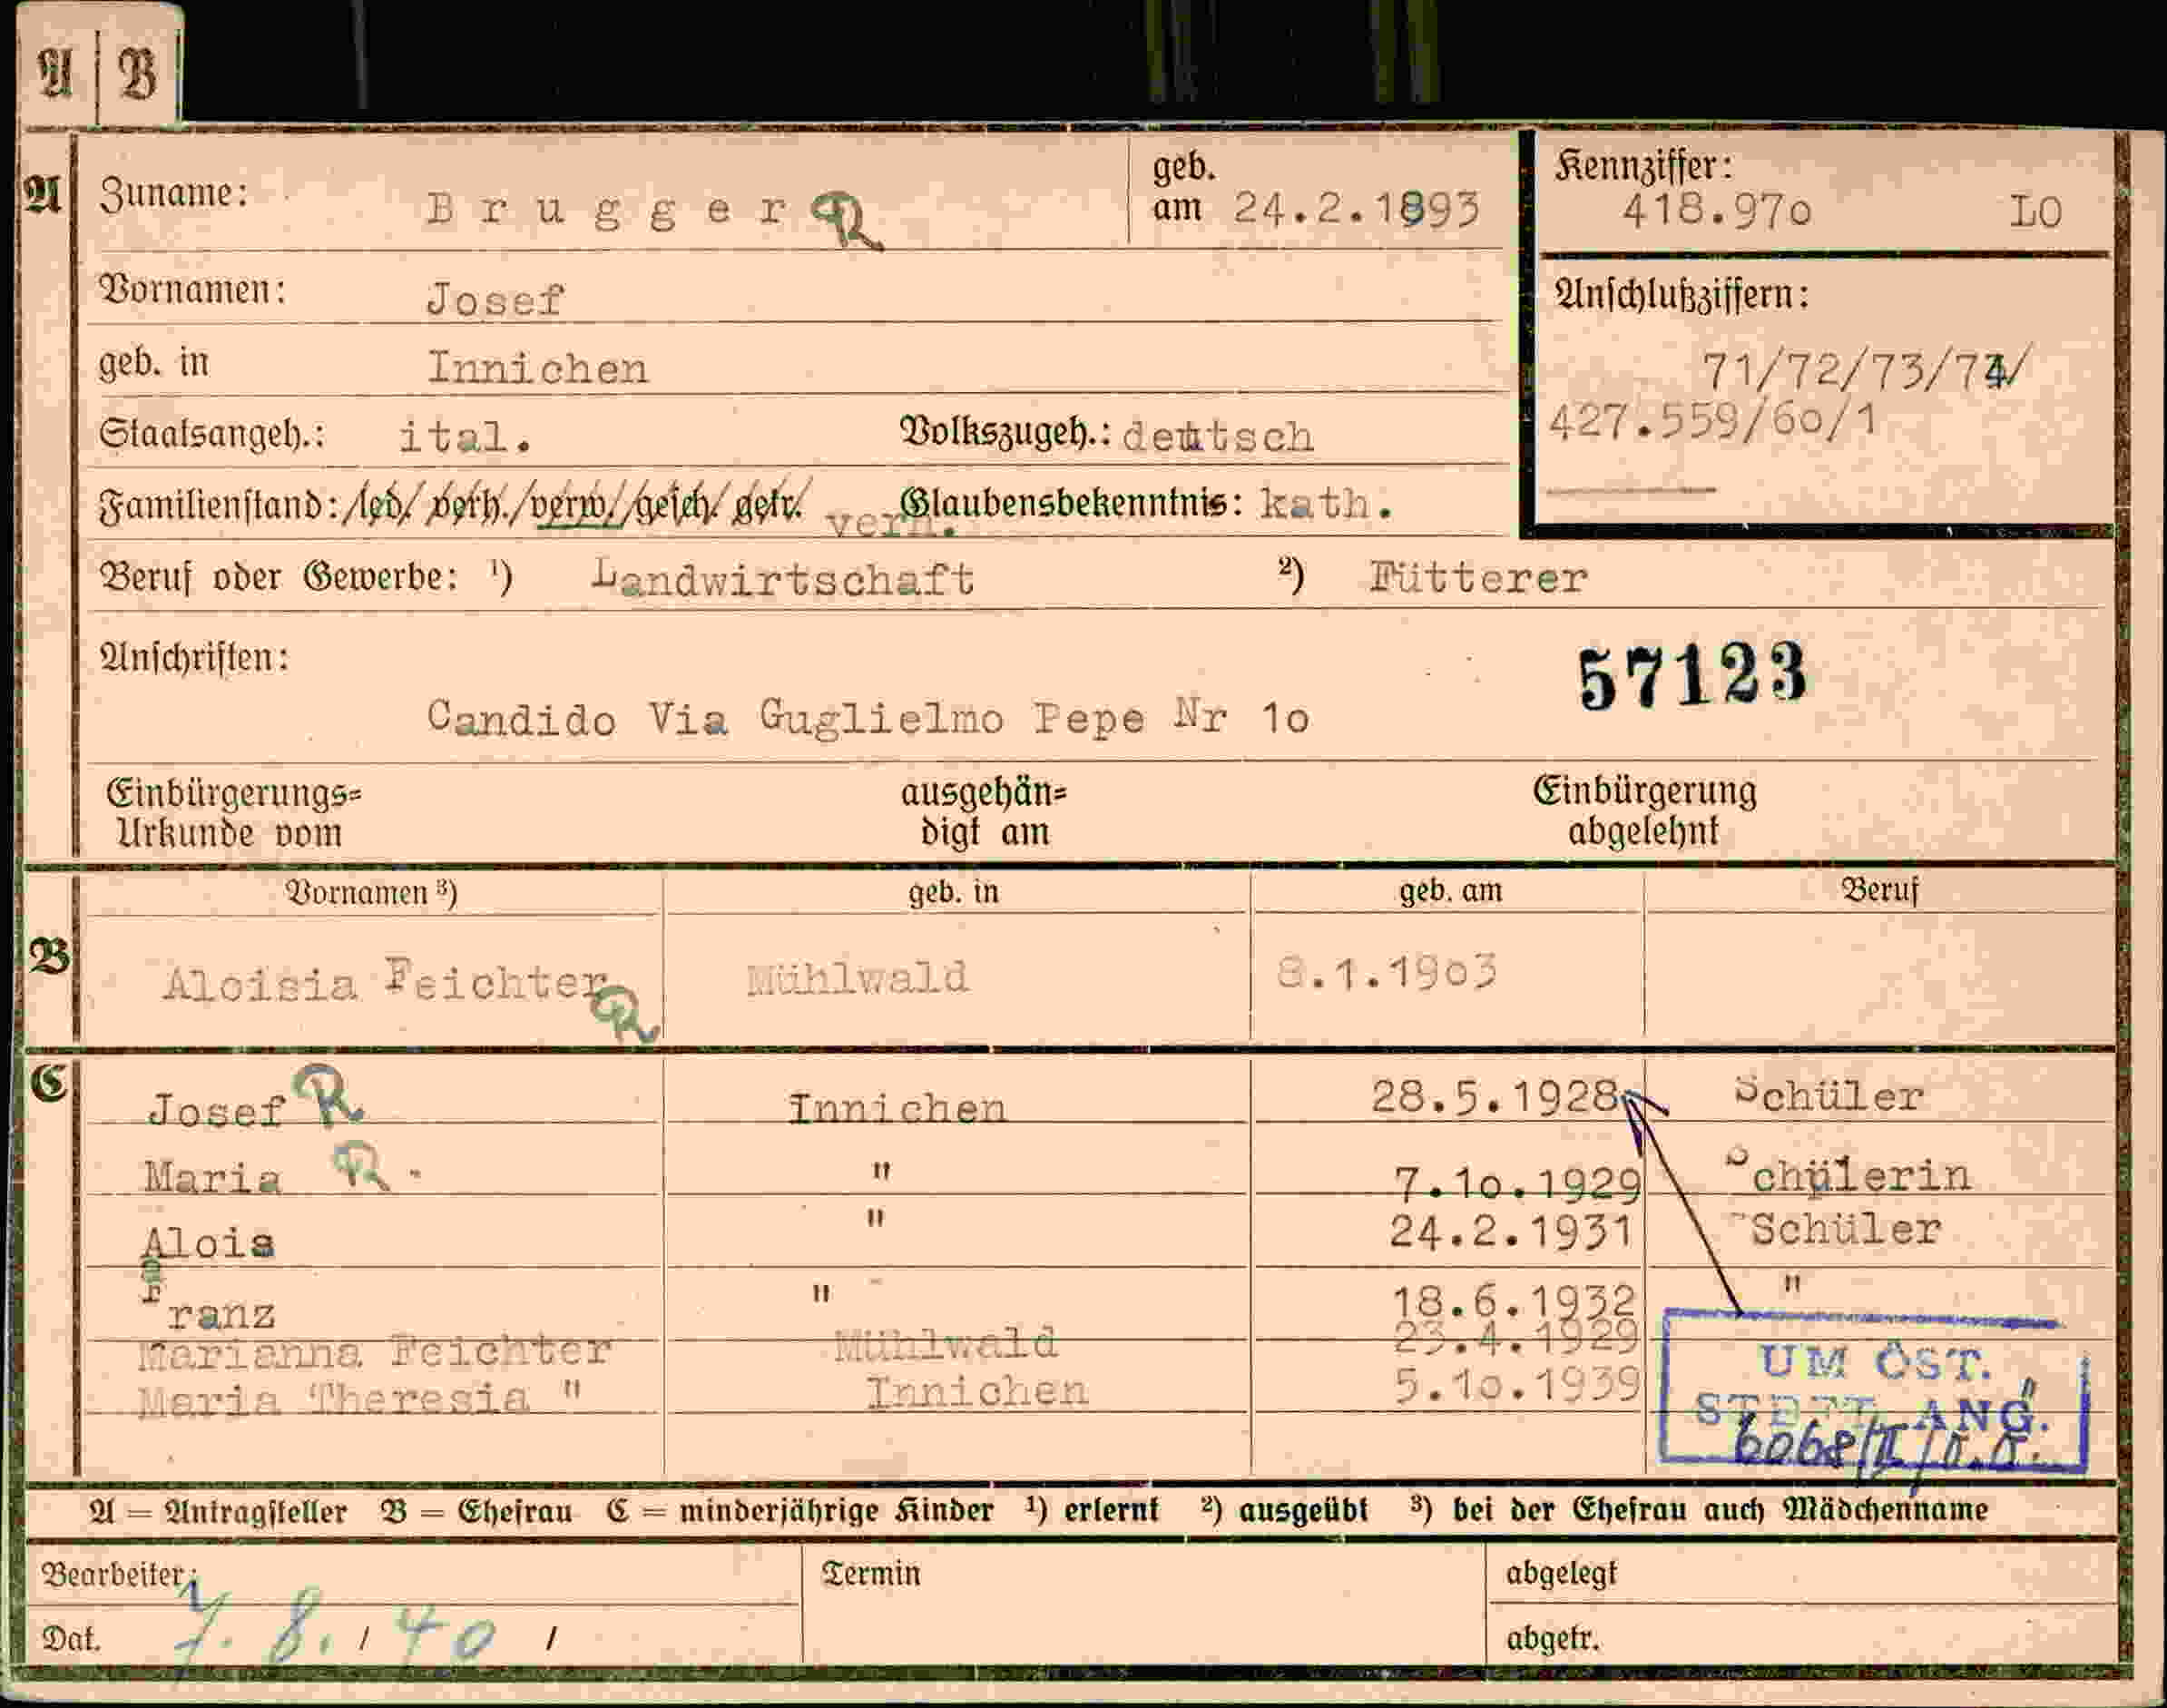 A | B
A Zuname: Brugger R geb. am 24.2.1893 Kennziffer: 418.970 LO
Vornamen: Josef Anschlußziffern:
geb. in Innichen 71/72/73/74/
Staatsangeh.: ital. Volkszugeh.: deutsch 427.559/60/1
Familienstand: /led/ verh./verw./gesch/ getr. verh. Glaubensbekenntnis: kath.
Beruf oder Gewerbe: ¹) Landwirtschaft ²) Fütterer
Anschriften: 57123
Candido Via Guglielmo Pepe Nr 10
Einbürgerungs= ausgehän= Einbürgerung
Urkunde vom digt am abgelehnt
Vornamen ³) geb. in geb. am Beruf
B Aloisia Feichter R Mühlwald 8.1.1903
C Josef R Innichen 28.5.1928 Schüler
Maria R " 7.10.1929 Schülerin
Alois " 24.2.1931 Schüler
Franz " 18.6.1932 "
Marianna Feichter Mühlwald 23.4.1929
Maria Theresia " Innichen 5.10.1939 "
UM ÖST.
ANG.
A = Antragsteller B = Ehefrau C = minderjährige Kinder ¹) erlernt ²) ausgeübt ³) bei der Ehefrau auch Mädchenname
Bearbeiter: Termin abgelegt
Dat. 7. 8. / 40 / abgetr.